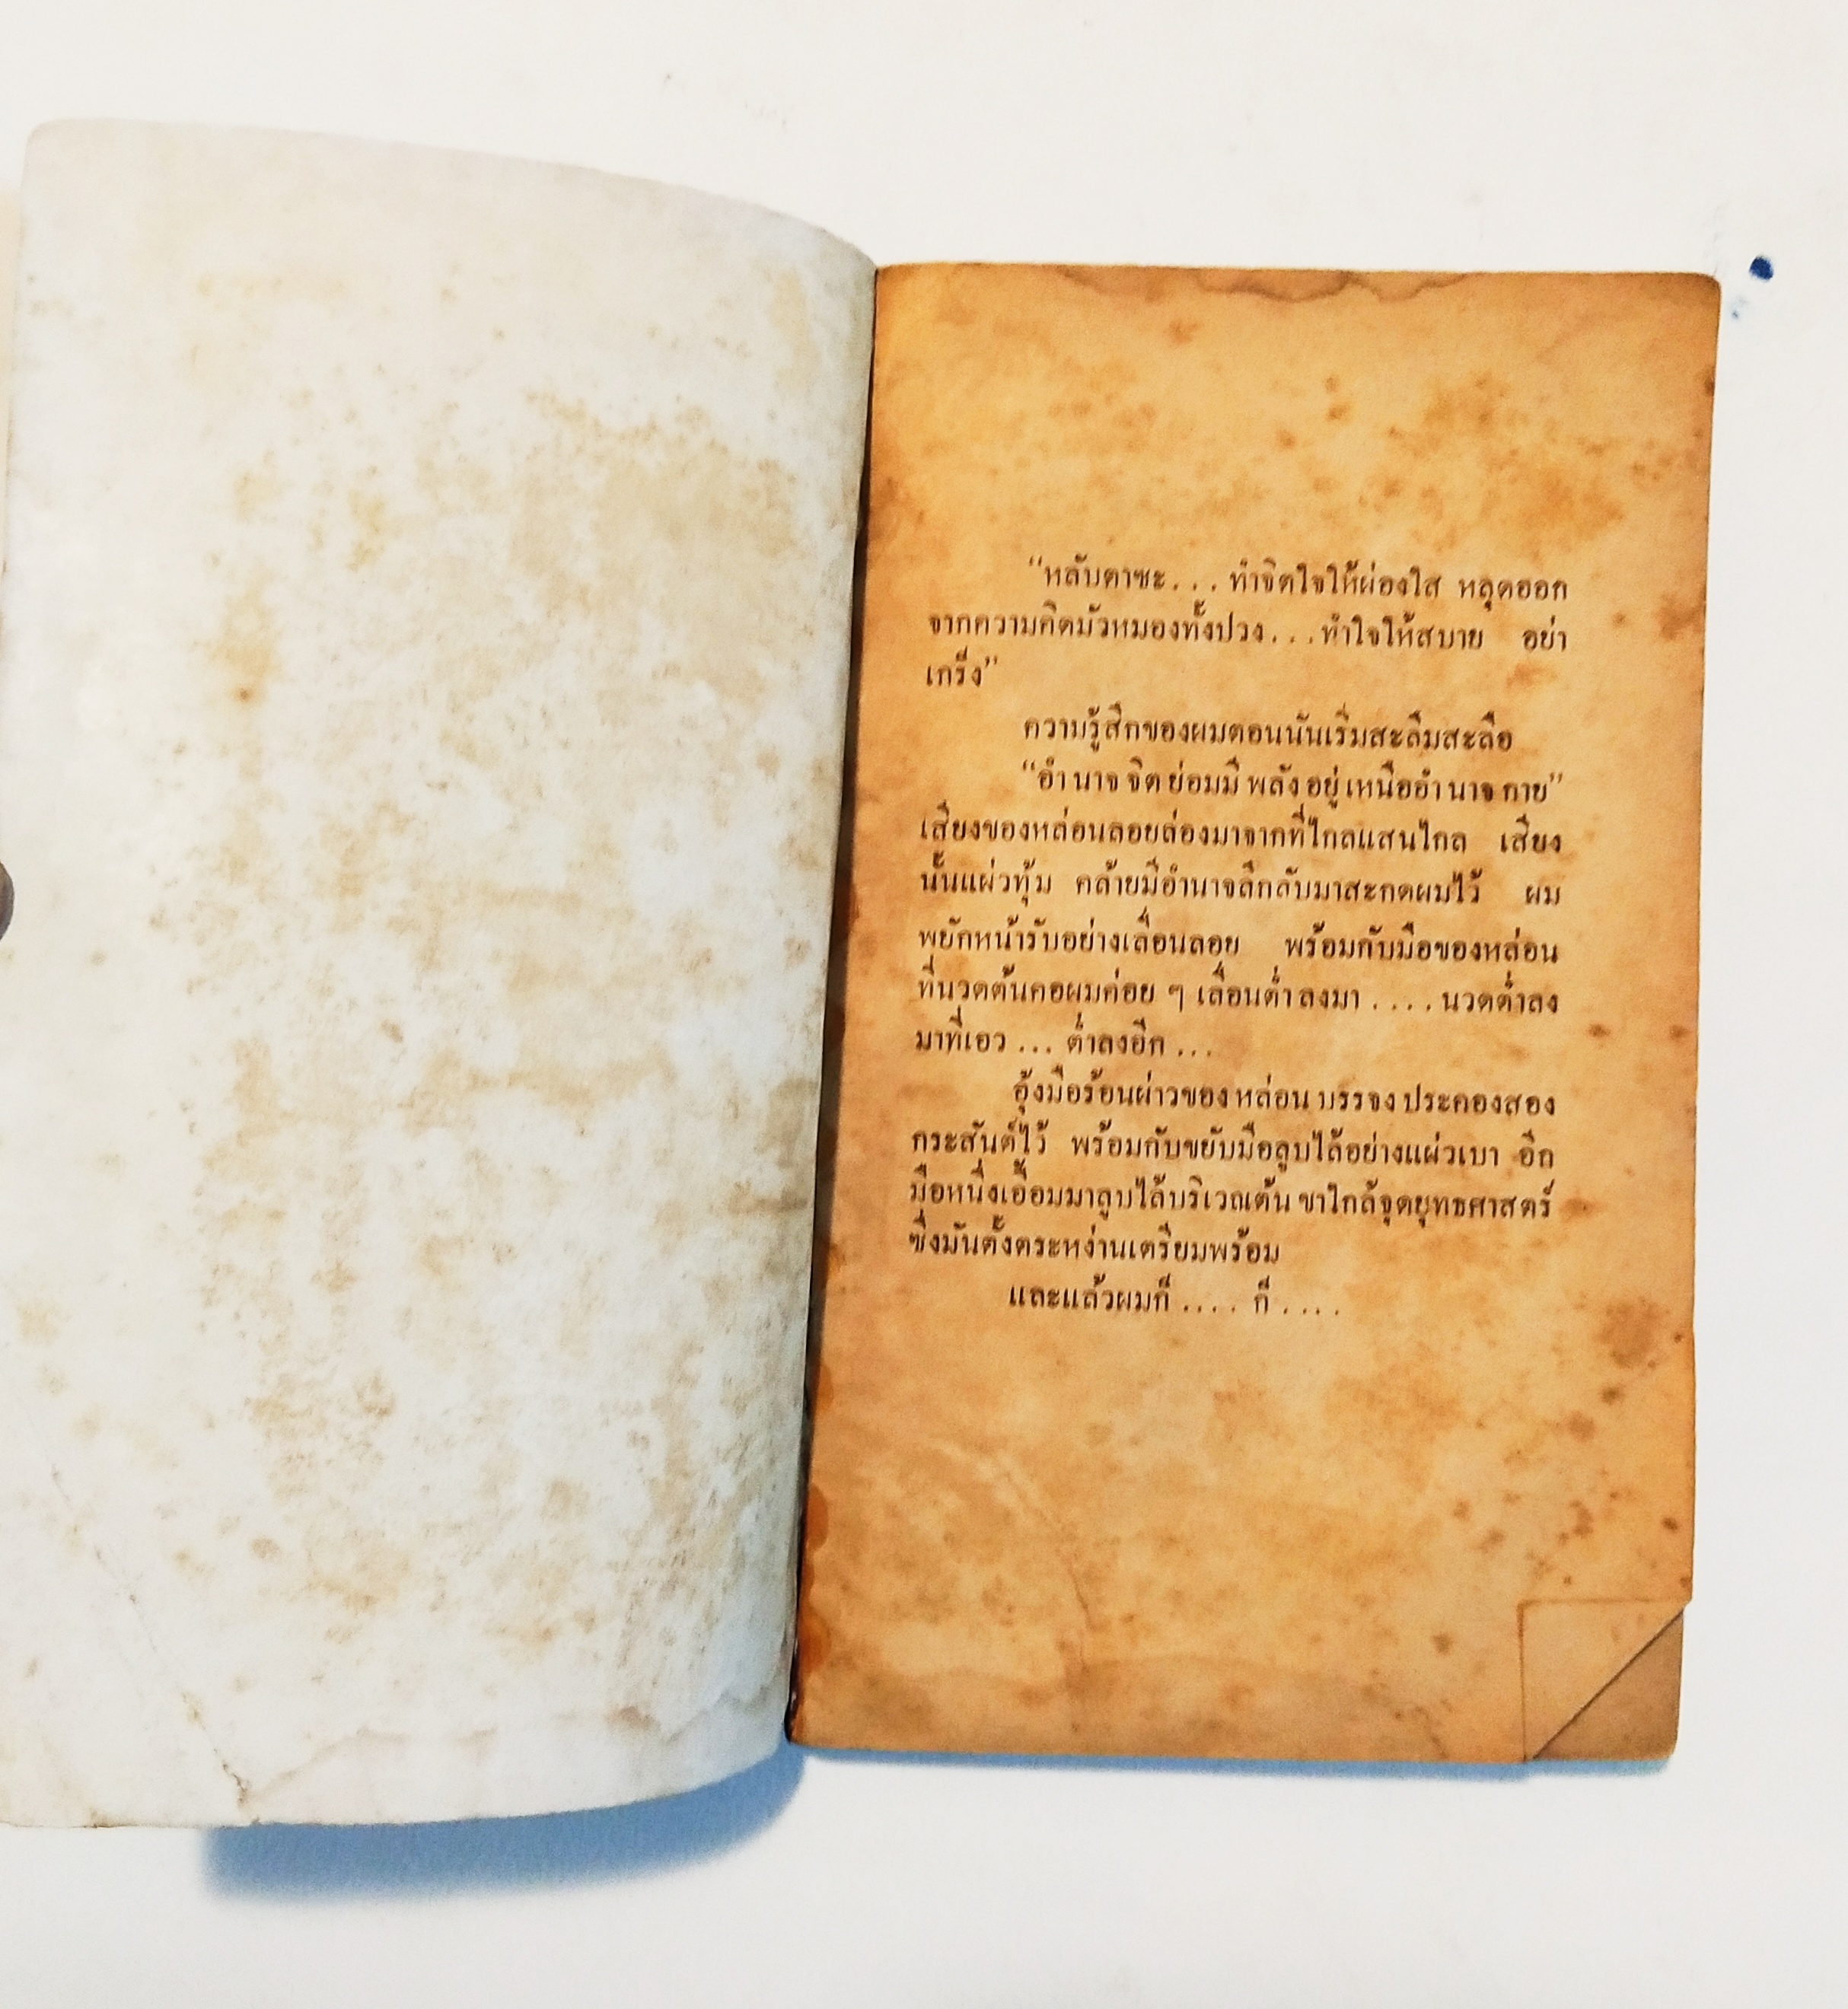 “หลับตาซะ... ทำจิตใจให้ผ่องใส หลุดออก
จากความคิดมัวหมองทั้งปวง...ทำใจให้สบาย อย่า
เกร็ง”
ความรู้สึกของผมตอนนั้นเริ่มสะลึมสะลือ
“อำนาจจิตย่อมมีพลังอยู่เหนืออำนาจกาย”
เสียงของหล่อนลอยล่องมาจากที่ไกลแสนไกล เสียง
นั้นแผ่วทุ้ม คล้ายมีอำนาจลึกลับมาสะกดผมไว้ ผม
พยักหน้ารับอย่างเลื่อนลอย พร้อมกับมือของหล่อน
ที่นวดต้นคอผมค่อย ๆ เลื่อนต่ำลงมา ....นวดต่ำลง
มาที่เอว ... ต่ำลงอีก ...
อุ้งมือร้อนผ่าวของหล่อนบรรจงประคองสอง
กระสันต์ไว้ พร้อมกับขยับมือลูบไล้อย่างแผ่วเบา อีก
มือหนึ่งเอื้อมมาลูบไล้บริเวณต้นขาใกล้จุดยุทธศาสตร์
ซึ่งมันตั้งตระหง่านเตรียมพร้อม
และแล้วผมก็ .... ก็ ....